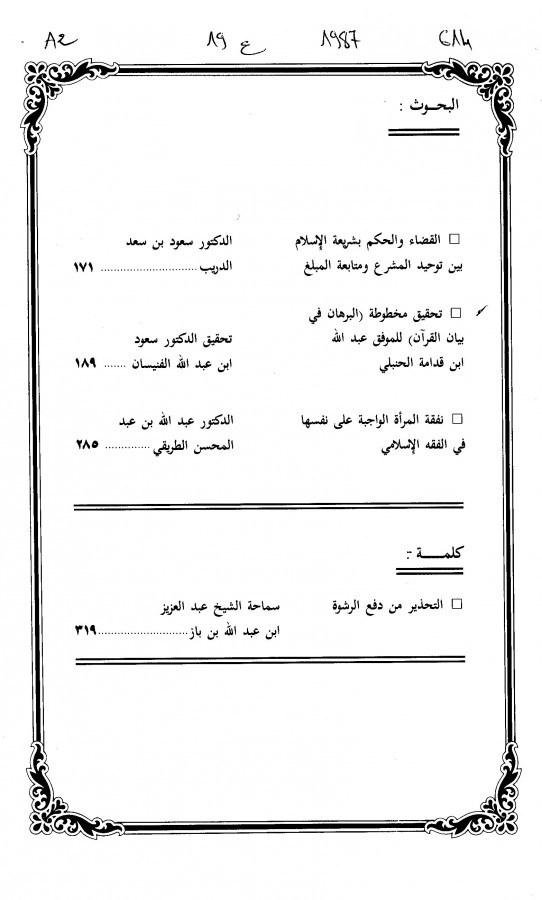 A2 ع 19 1987 614
البحوث :
□ القضاء والحكم بشريعة الإسلام الدكتور سعود بن سعد
بين توحيد المشرع ومتابعة المبلغ الدريب ............................. ١٧١
□ تحقيق مخطوطة (البرهان في
بيان القرآن) للموفق عبد الله تحقيق الدكتور سعود
ابن قدامة الحنبلي ابن عبد الله الفنيسان ....... ١٨٩
□ نفقة المرأة الواجبة على نفسها الدكتور عبد الله بن عبد
في الفقه الإسلامي المحسن الطريقي .............. ٢٨٥
كلمـــــة :-
□ التحذير من دفع الرشوة سماحة الشيخ عبد العزيز
ابن عبد الله بن باز............................ ٣١٩